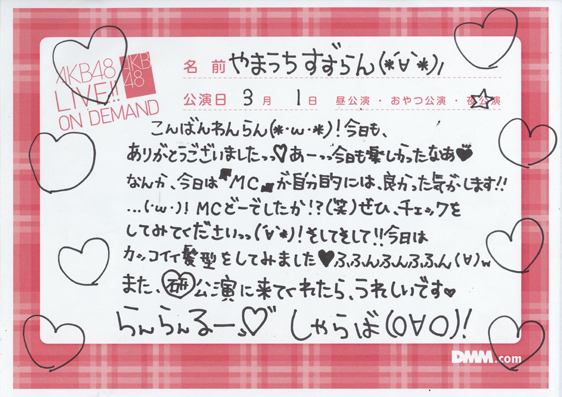 AKB48
LIVE!!
ON DEMAND
AKB
48
名前 やまっちすずらん(*´∀`*)ノ
公演日 3月1日 昼公演・おやつ公演・夜公演
こんばんわんらん(*・ω・*)!今日も、
ありがとうございましたっっ♡あーっっ今日も楽しかったなあ♥
なんか、今日は『MC』が自分的には、良かった気がします!!
...(・ω・)!MCどーでしたか!?(笑)ぜひ、チェックを
してみてくださいっっ(´∀`*)!そしてそして!!今日は
カッコイイ髪型をしてみました♥ふふんふんふふん(∀)w
また、研公演に来てくれたら、うれしいです♥
らんらんるーっ♡ しゃらば(O∀O)!
DMM.com